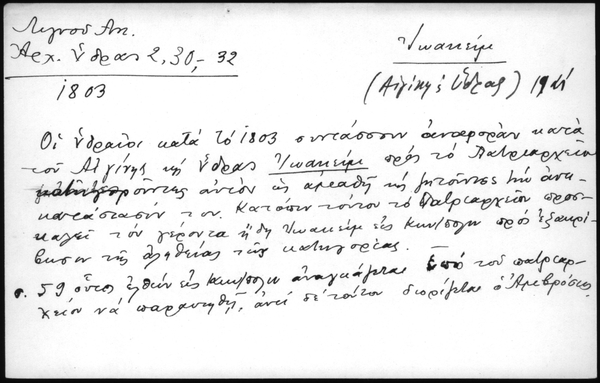 Λιγνού Αντ.
Ἀρχ. Ὕδρας 2, 30, - 32
1803
Ἰωακείμ
(Αἰγίνης & Ὕδρας)
Οἱ Ὑδραῖοι κατὰ τὸ 1803 συντάσσουν ἀναφορὰν κατὰ
τοῦ Αἰγίνης καὶ Ὕδρας Ἰωακείμ πρὸς τὸ Πατριαρχεῖον
αὐτὸν ὡς ἀμαθῆ καὶ ζητοῦντες τὴν ἀντι-
κατάστασίν του. Κατόπιν τούτου τὸ Πατριαρχεῖον προσ-
καλεῖ τὸν γέροντα ἤδη Ἰωακεὶμ εἰς Κων/πολιν πρὸς ἐξακρί-
βωσιν τῆς ἀληθείας τῆς κατηγορίας.
σ. 59 οὗτος ἐλθὼν εἰς Κων/πολιν ἀναγκάζεται ὑπὸ τοῦ πατριαρ-
χείου νὰ παραιτηθῇ, ἀντὶ δὲ τούτου διορίζεται ὁ Ἀμβρόσιος